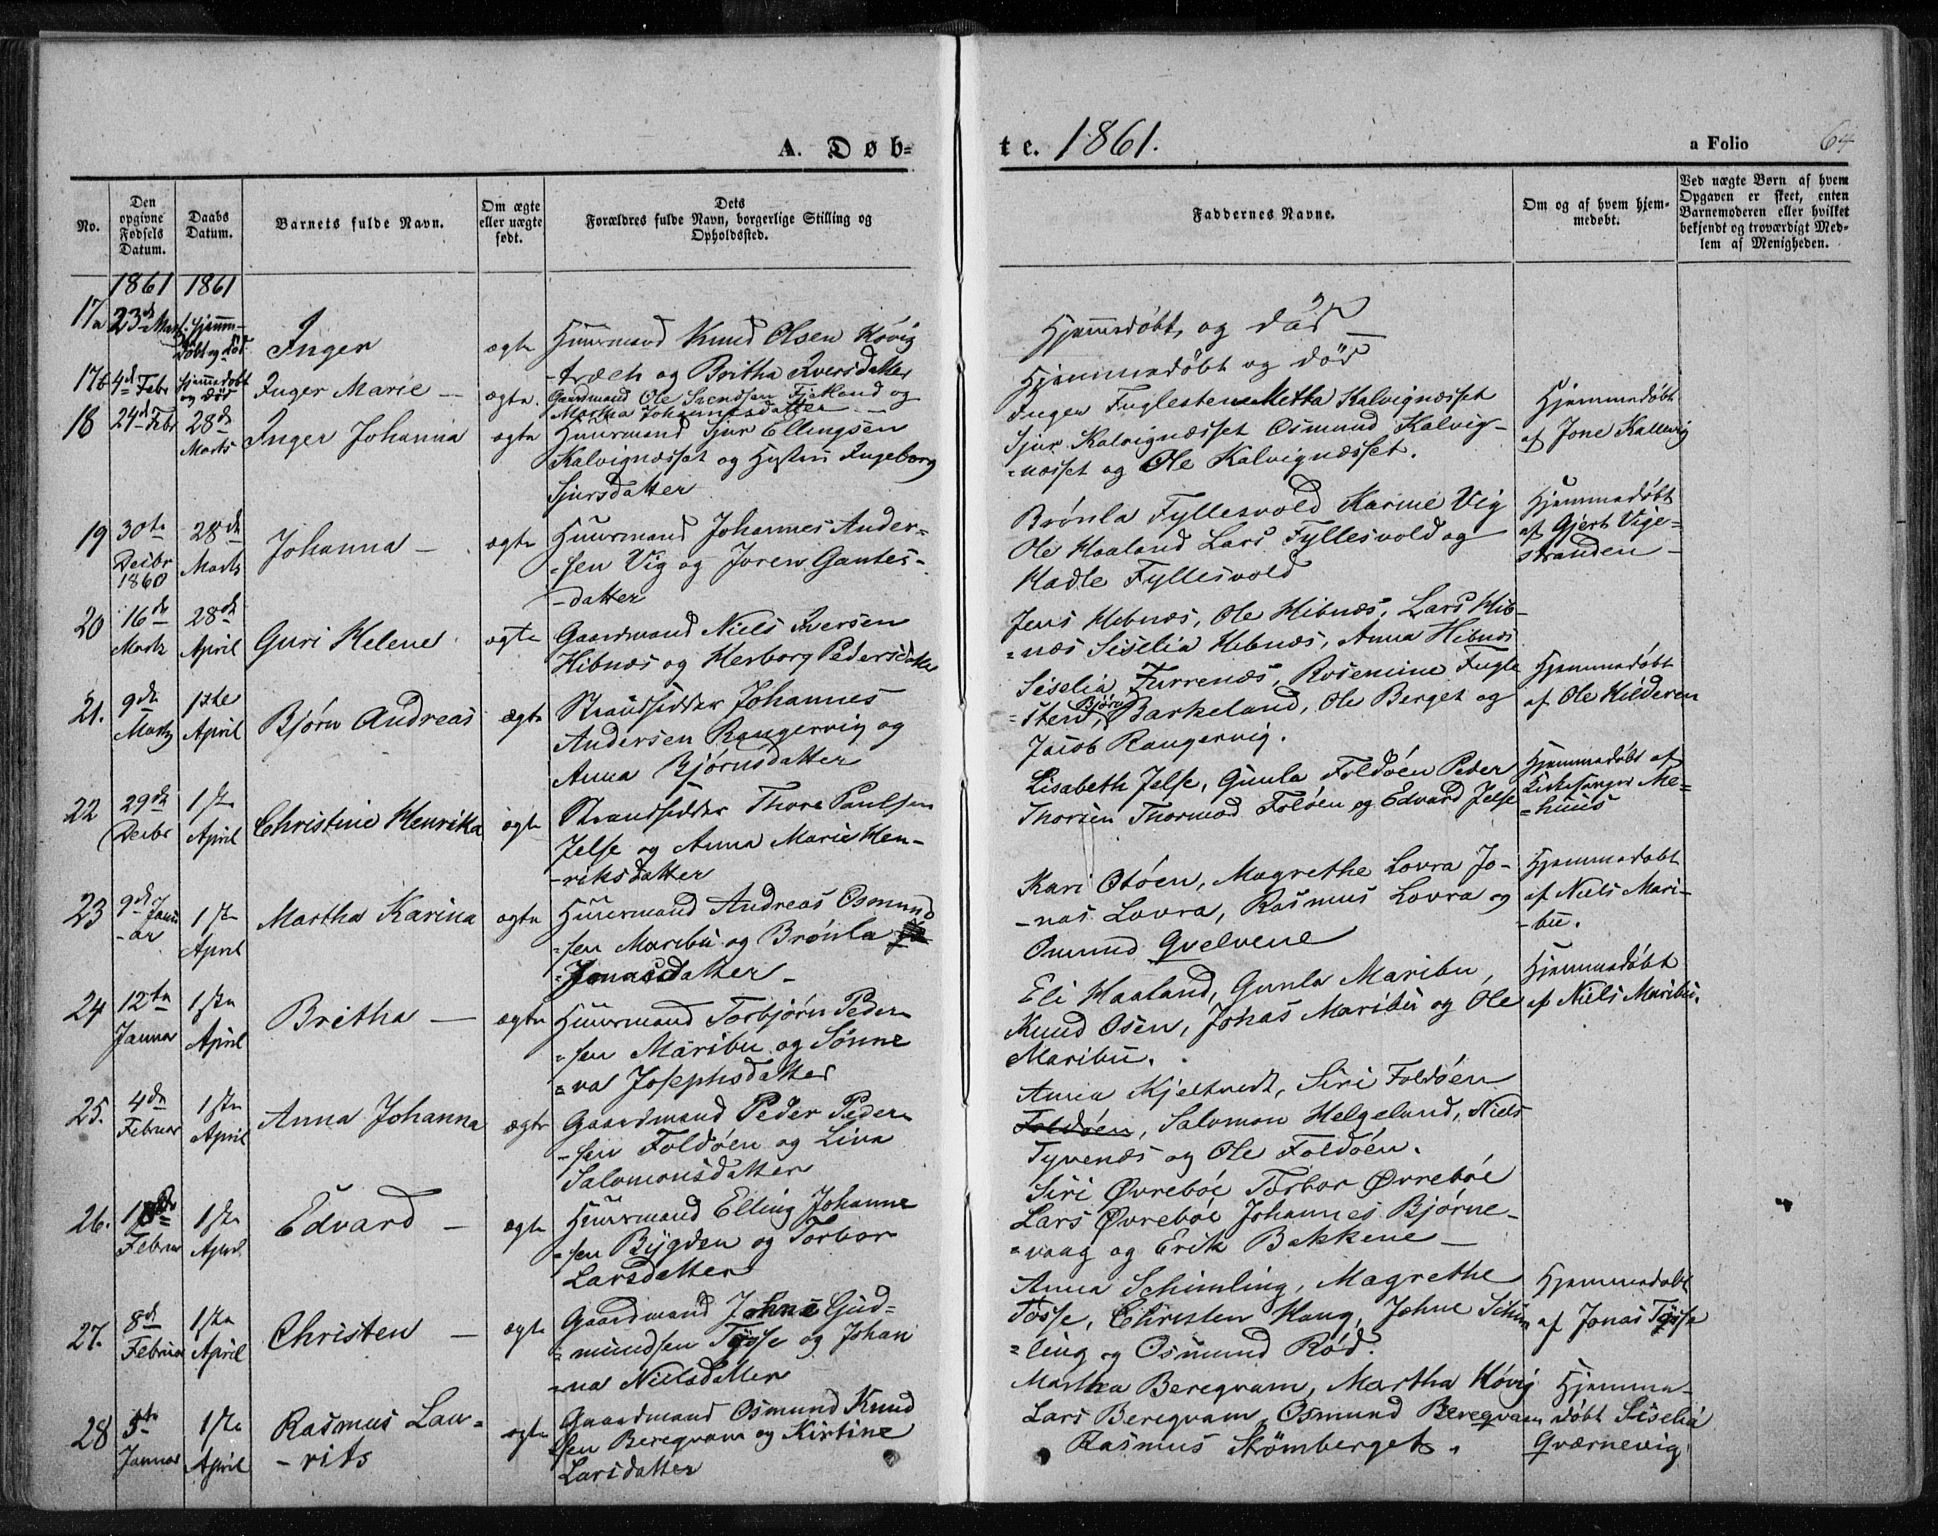 A. Døb-
te. 1861.
a Folio 64
No.
Den opgivne Fødsels Datum.
Daabs Datum.
Barnets fulde Navn.
Om ægte eller uægte født.
Dets Forældres fulde Navn, borgerlige Stilling og Opholdssted.
Faddernes Navne.
Om og af hvem hjemmedøbt.
Ved uægte Børn af hvem Opgaven er skeet, enten Barnemoderen eller hvilket bekjendt og troværdigt Medlem af Menigheden.
1861 1861
17a 23de Marts Hjemmedøbt og død Inger ægte Huusmand Knud Olsen Høvig
-træet og Britha Iversdatter
Hjemmedøbt og død
17b 4de Febr Hjemmedøbt og død Inger Marie — ægte. Gaardmand Ole Svendsen Fjetland og
Martha Johannesdatter
Hjemmedøbt og død
18 24de Febr 28de Marts Inger Johanna ægte Huusmand Sjur Ellingsen
Kalvignæsset og Hustru Ingeborg
Sjursdatter
Inger Fuglesteen Metta Kalvignæsset
Sjur Kalvignæsset Osmund Kalvig-
-næsset og Ole Kalvignæsset.
Hjemmedøbt
af Jone Kallevig
19 30te Decbr 1860 28de Marts Johanna — ægte Huusmand Johannes Ander-
-sen Vig og Joren Gautes-
-datter
Brønla Fyllesvold Karine Vig
Ole Haaland Lars Fyllesvold og
Hadle Fyllesvold
Hjemmedøbt
af Gjert Vige-
stranden —
20 16de Marts 28de April Guri Helene ægte Gaardmand Niels Iversen
Hibnæs og Herborg Pedersdatter
Jens Hibnæs, Ole Hibnæs, Lars Hib-
-næs Siselia Hibnæs, Anna Hibnæs
21. 9de Marts 1ste April Bjørn Andreas ægte Strandsidder Johannes
Andersen Rangervig og
Anna Bjørnsdatter
Siselia Furrenæs, Rosemine Fugle
-sten, Bjørn Barkeland, Ole Berget og
Jacob Rangervig.
Hjemmedøbt
af Ole Hilderen
22 29de Decbr 1ste April Christine Henrika ægte Strandsidder Thore Paulsen
Jelse og Anna Marie Hen-
-riksdatter
Lisabeth Jelse, Gunla Foldøen Peder
Thorsen Thormod Foløen og Edvard Jelse
Hjemmedøbt af
Kirkesanger Me-
-huus
23 9de Janu-ar 1ste April Martha Karina ægte Huusmand Andreas Osmund
-sen Maribu og Brønla
Jonasdatter —
Kari Otøen, Magrethe Lovra Jo-
-nas Lovra, Rasmus Lovra og
Omund Qvelvene
Hjemmedøbt
af Niels Mari-
-bu.
24 12te Januar 1ste April Britha — ægte Huusmand Torbjørn Peder
-sen Maribu og Sønne
-va Josephsdatter
Eli Haaland, Gunla Maribu,
Knud Osen, Johas Maribu og Ole
Maribu.
Hjemmedøbt
af Niels Maribu.
25. 4de Februar 1ste April Anna Johanna ægte Gaardmand Peder Peder
-sen Foldøen og Lina
Salomonsdatter
Anna Kjeltvedt, Siri Foldøen
Foldøen, Salomon Helgeland, Niels
Tyvenæs og Ole Foldøen.
26. Februar 1ste April Edvard — ægte Huusmand Elling Johanne
-sen Bygden og Torbor
Larsdatter
Siri Øvrebøe Torbor Øvrebøe
Lars Øvrebøe Johannes Bjørne-
-vaag og Erik Bakkene —
27. 8de Februar 1ste April Christen — ægte Gaardmand Johne Gud-
-mundsen Tøsse og Johan
-na Nielsdatter
Anna Schimling, Magrethe
Tøsse, Christen Haug, Johne Schim
-ling og Osmund Rød.
Hjemmedøbt
af Jonas Tøsse
28 5te Januar 1ste April Rasmus Lau-
-rits ægte Gaardmand Osmund Knud
-sen Bereqvam og Kirtine
Larsdatter
Martha Bereqvam, Martha Høvig
Lars Bereqvam, Osmund Bereqvam
Rasmus Strømberget.
Hjemme-
døbt Siselia
Qværnevig